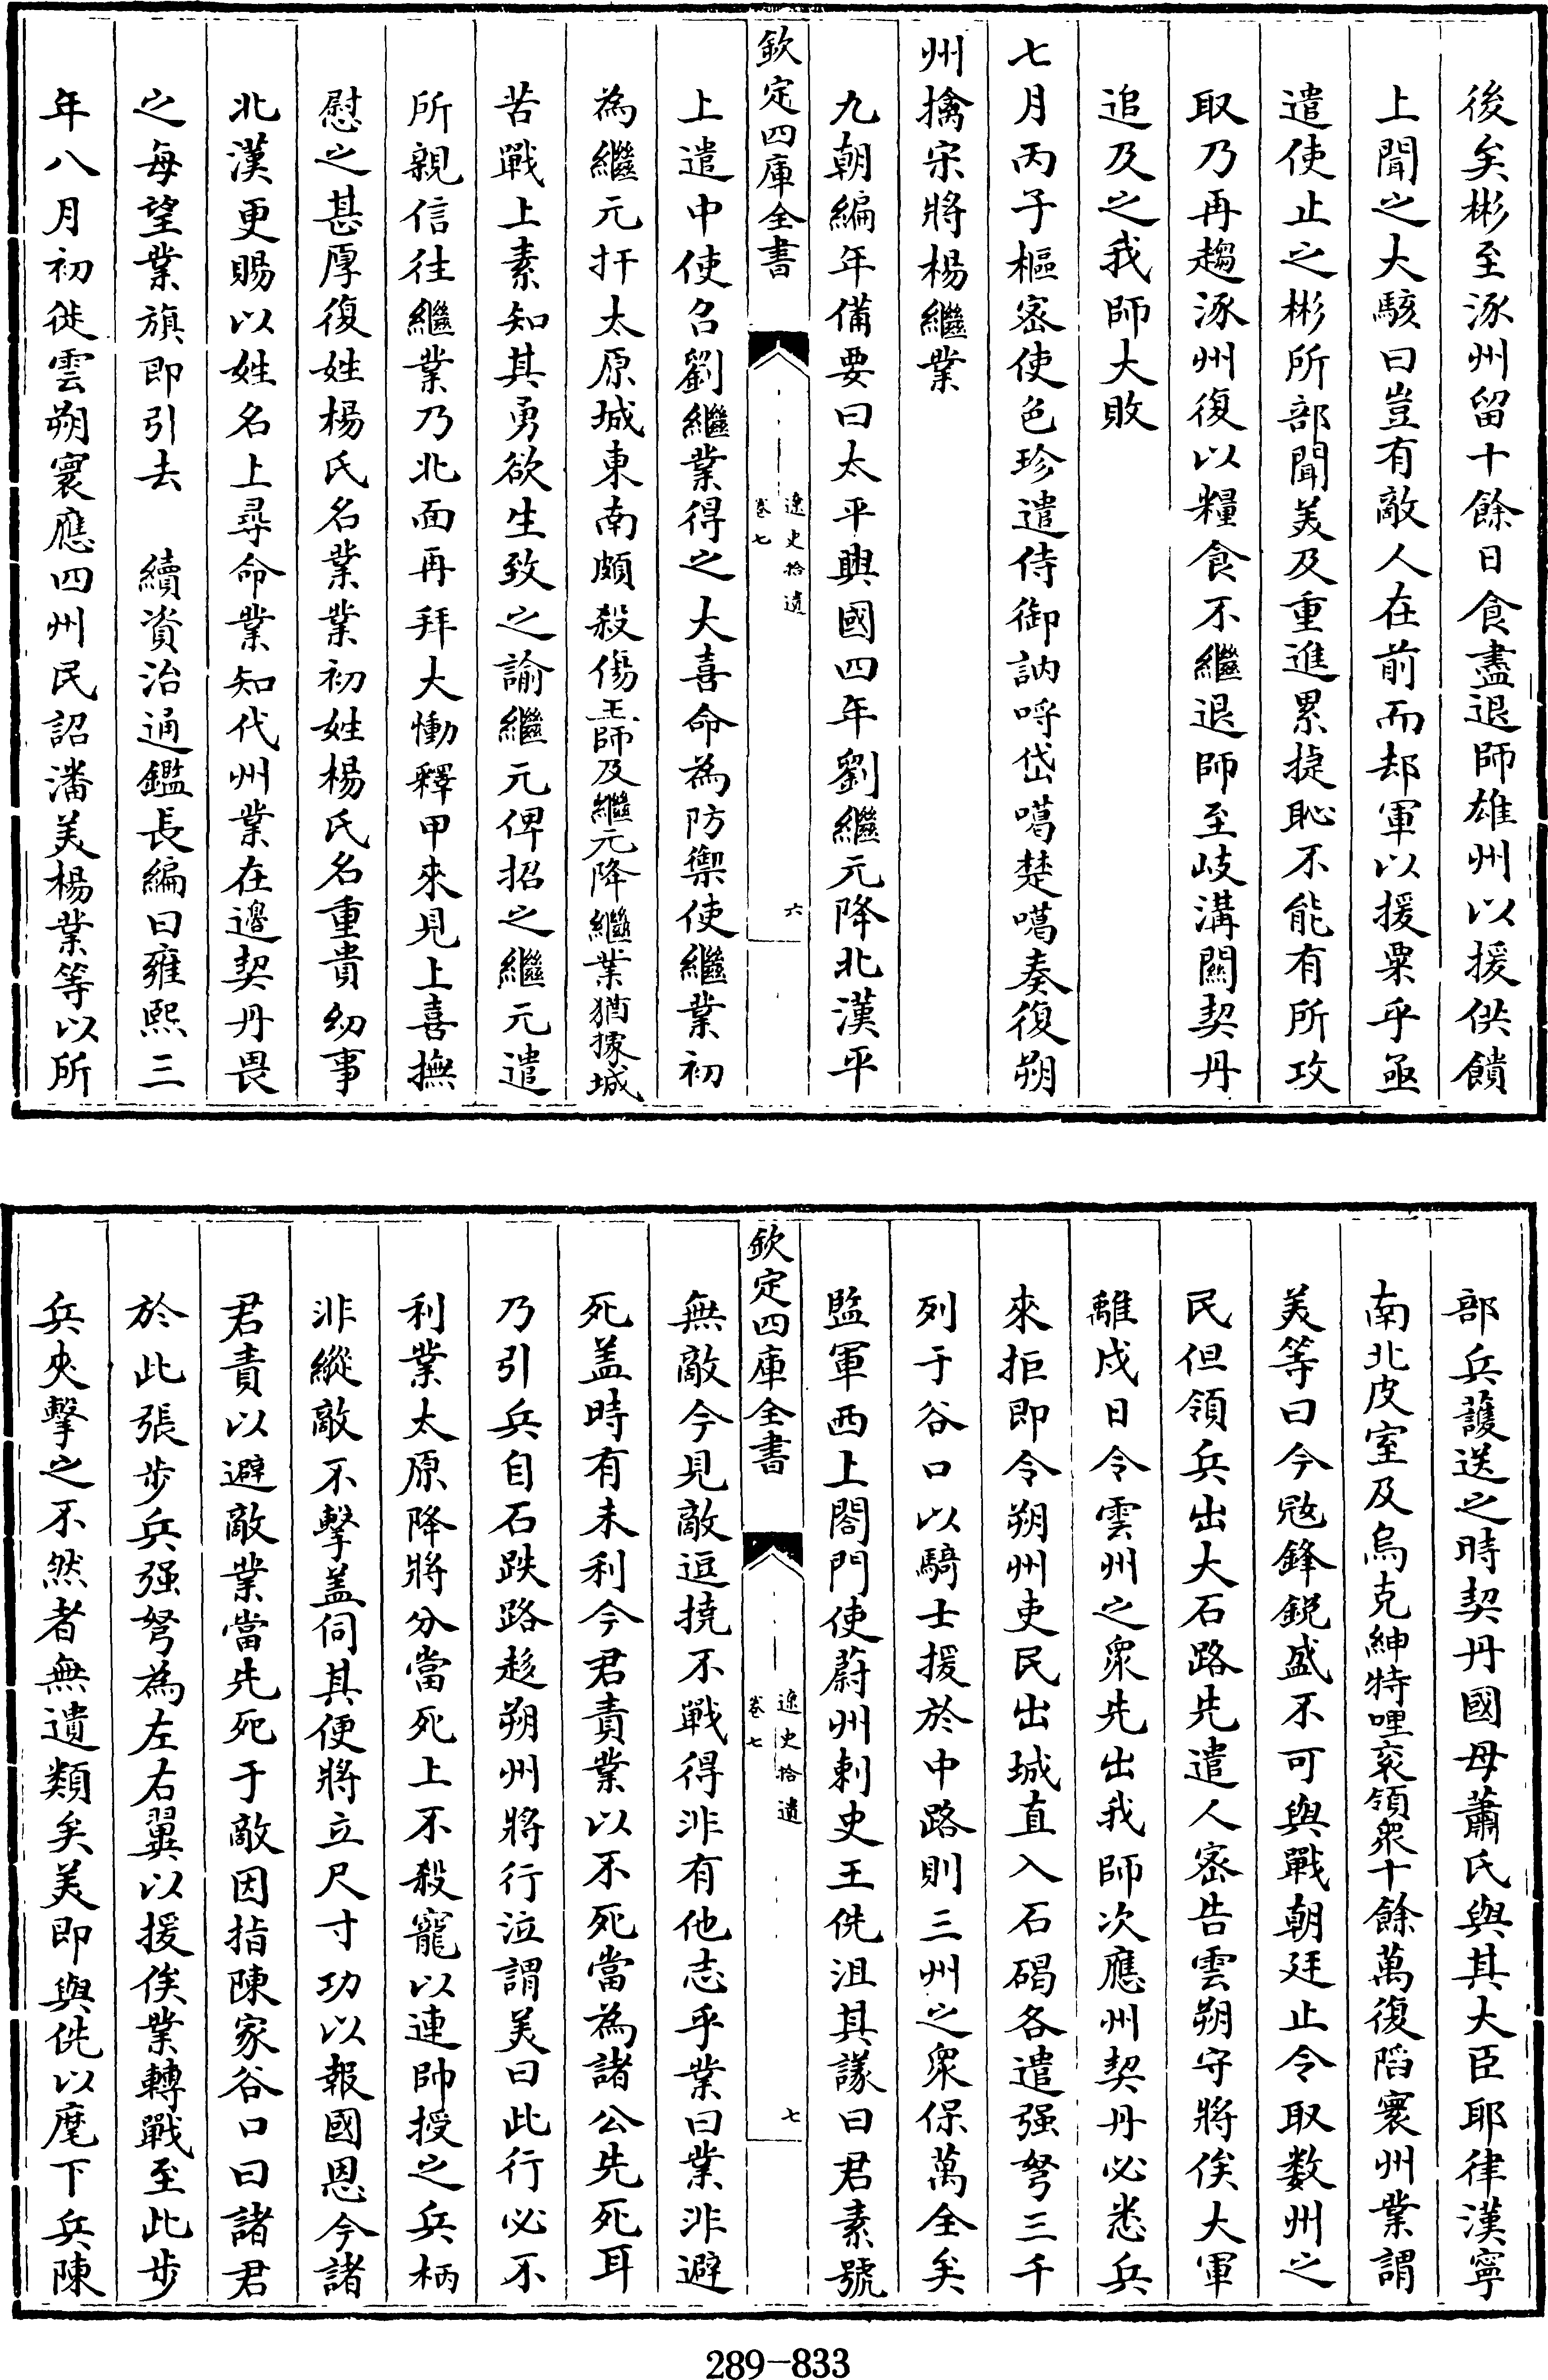 後矣彬至涿州留十餘日食盡退師雄州以援供饋
上聞之大駭曰豈有敵人在前而却軍以援粟乎亟
遣使止之彬所部聞美及重進累捷恥不能有所攻
取乃再趨涿州復以糧食不繼退師至岐溝關契丹
追及之我師大敗
七月丙子樞密使色珍遣侍御訥呼岱噶楚噶奏復朔
州擒宋將楊繼業
九朝編年備要曰太平興國四年劉繼元降北漢平
欽定四庫全書
遼史拾遺
卷七
六
上遣中使召劉繼業得之大喜命為防禦使繼業初
為繼元扞太原城東南頗殺傷王師及繼元降繼業猶據城
苦戰上素知其勇欲生致之諭繼元俾招之繼元遣
所親信往繼業乃北面再拜大慟釋甲來見上喜撫
慰之甚厚復姓楊氏名業業初姓楊氏名重貴幼事
北漢更賜以姓名上尋命業知代州業在邊契丹畏
之每望業旗即引去 續資治通鑑長編曰雍熙三
年八月初徙雲朔寰應四州民詔潘美楊業等以所
部兵護送之時契丹國母蕭氏與其大臣耶律漢寧
南北皮室及烏克紳特哩衮領衆十餘萬復陷寰州業謂
美等曰今敵鋒鋭盛不可與戰朝廷止令取數州之
民但領兵出大石路先遣人密告雲朔守將俟大軍
離戍日令雲州之衆先出我師次應州契丹必悉兵
來拒即令朔州吏民出城直入石碣各遣强弩三千
列于谷口以騎士援於中路則三州之衆保萬全矣
監軍西上閤門使蔚州刺史王侁沮其議曰君素號
欽定四庫全書
遼史拾遺
卷七
七
無敵今見敵逗撓不戰得非有他志乎業曰業非避
死盖時有未利今君責業以不死當為諸公先死耳
乃引兵自石跌路趍朔州將行泣謂美曰此行必不
利業太原降將分當死上不殺寵以連帥授之兵柄
非縱敵不擊盖伺其便將立尺寸功以報國恩今諸
君責以避敵業當先死于敵因指陳家谷口曰諸君
於此張步兵强弩為左右翼以援俟業轉戰至此步
兵夾擊之不然者無遺類矣美即與侁以麾下兵陳
289-833